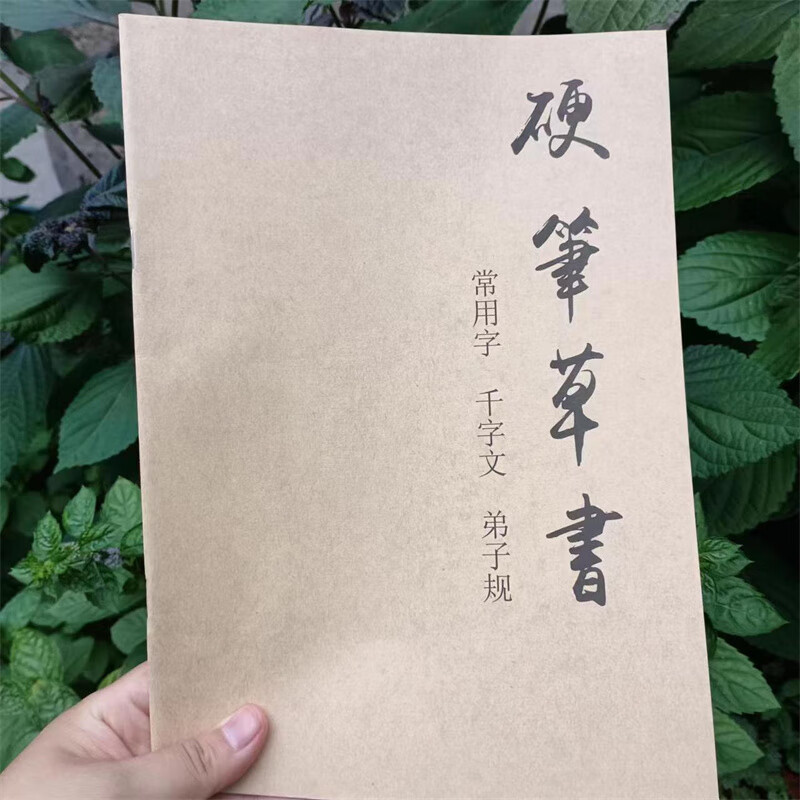 硬筆草書
常用字 千字文 弟子规